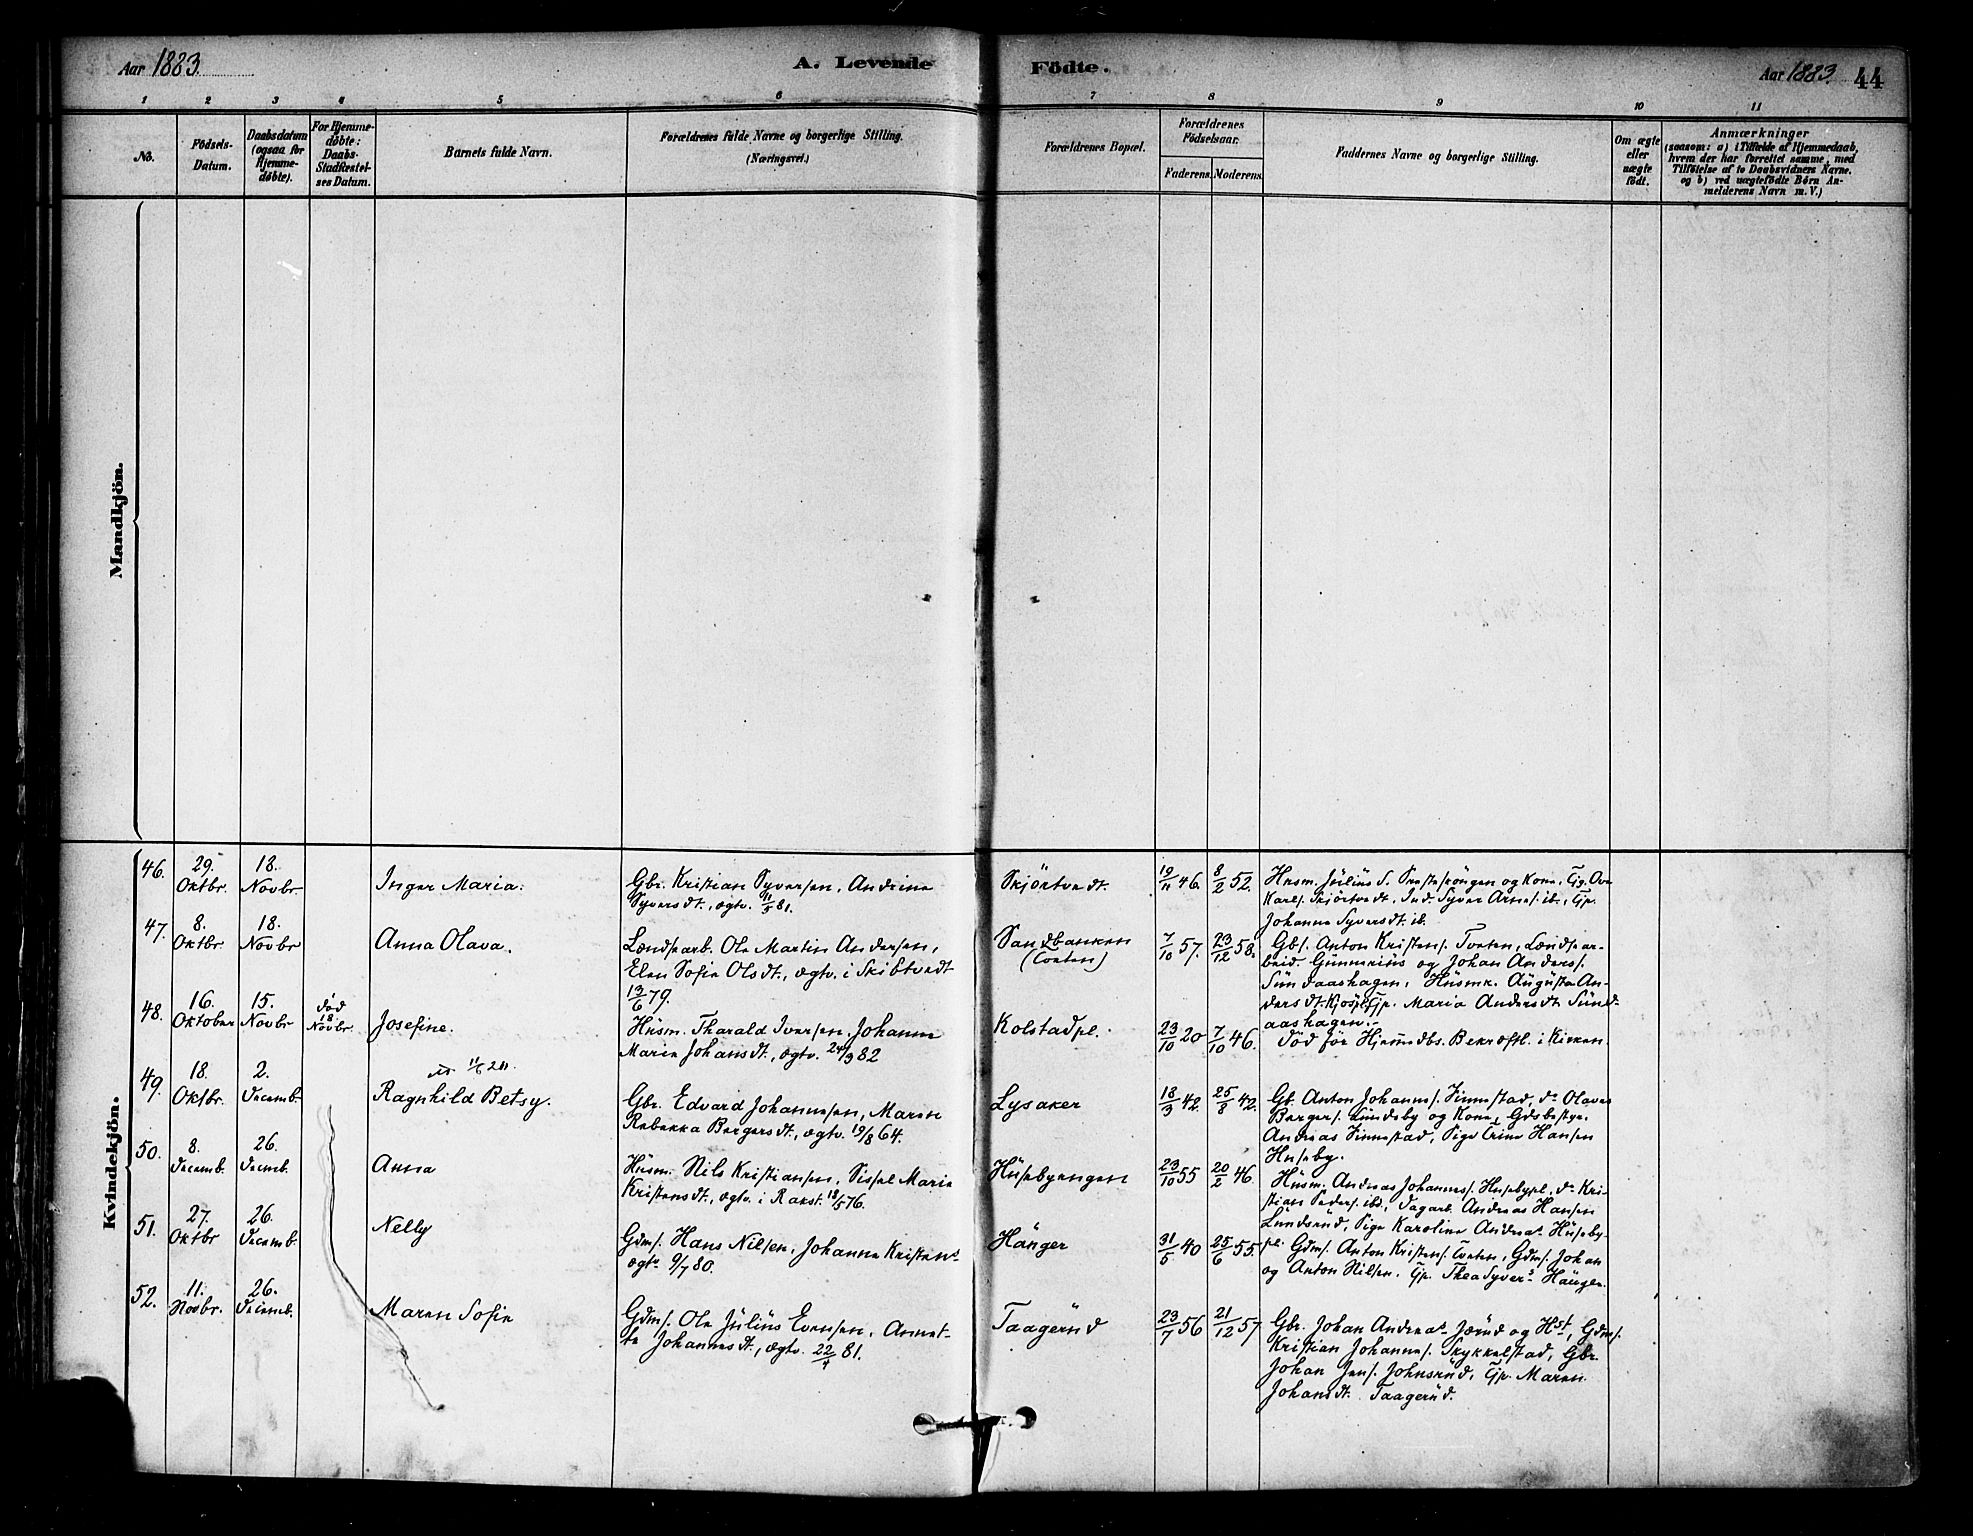 Aar 1883.
A. Levende Födte.
Aar 1883. 44
1 2 3 4 5 6 7 8 9 10 11
No.
Födsels-
Datum.
Daabsdatum
(ogsaa for
Hjemme-
døbte).
For Hjemme-
døbte:
Daabs-
Stadfæstel-
ses Datum.
Barnets fulde Navn.
Forældrenes fulde Navne og borgerlige Stilling.
(Næringsvei.)
Forældrenes Bopæl.
Forældrenes
Födselsaar.
Faderens. Moderens.
Faddernes Navne og borgerlige Stilling.
Om ægte
eller
uægte
født.
Anmærkninger
(saasom: a) i Tilfælde af Hjemmedaab,
hvem der har forrettet samme, med
Tilføielse af to Daabsvidners Navne.
og b) ved uægtefødte Börn An-
melderens Navn m. V.)
Mandkjön.
Kvindekjön.
46.
29.
Oktbr.
18.
Novbr.
Inger Maria.
Gbr. Kristian Syversen, Andrine
Syversdt., ægtv. 11/5 81.
Skjörtvedt.
19/11 46. 8/2 52.
Husm. Júliús S. og Kone, Gg. Ove
Karls. Skjörtvedt, Ind. Syver Arnes. ib., Gp.
Johanne Syversdt. ib.
47.
8.
Oktbr.
18.
Novbr
Anna Olava.
Lændsearb. Ole Martin Andersen,
Elen Sofie Olsdt., ægtv. i Skibtvedt
13/6 79.
Sandbanken
(Tveten)
7/10 57. 23/12 58.
Gbs. Anton Kristens. Tveten, Lændsear-
beid. Gúnnerius og Johan Anders.
Súndaashagen, Húsmk. Augústa An-
dersdt. Gp. Maria Andersdt. Súnd-
aashagen.
48.
16.
Oktober
15.
Novbr
död
18.
Novbr.
Josefine.
Húsm. Tharald Iversen, Johanne
Marie Johansdt., ægtv. 24/3 82
Kolstadpl.
23/10 20 7/10 46.
Död för Hjemmedbs. Bekræftl. i Kirken.
49.
18.
Oktbr.
2.
Decemb.
Ragnhild Betsy.
Gbr. Edvard Johannesen, Maren
Rebekka Bergersdt., ægtv. 19/8 64.
Lysaker
18/3 42. 25/8 42.
Gb. Anton Johanns. Finnestad, do Olaves
Bergers. Lúndeby og Kone, Gdsbestyr.
Andreas Finnestad, Pige Trine Hansen
Huseby.
50.
8.
Decemb.
26.
Decmb.
Anna
Húsm. Nils Kristiansen, Sissel Marie
Kristensdt., ægtv. i Rakst. 18/5 76.
Húsebyengen
23/10 55 20/2 46.
Húsm. Andreas Johannes. Husebypl., do Kri-
stian Peders. ibd., Dagarb. Andreas Hansen
Lúndsrúd, Pige Karoline Andreas. Húseby-
pl.
51.
27.
Oktbr
26.
Decemb.
Nelly
Gdms. Hans Nilsen, Johanne Kristens.
ægtv. 9/7 80.
Hånger
31/5 40 25/6 55.
Gdms. Anton Kristens. Tveten, Gdms. Johan
og Anton Nilsen, Gp. Thea Syvers. Hånger.
52.
11.
Novbr.
26.
Decemb.
Maren Sofie
Gdms. Ole Júliús Evensen, Annet-
te Johannesdt., ægtv. 22/4 81.
Taagerúd
23/7 56 21/12 57
Gbr. Johan Andreas. Jærúd og Hst., Gdms.
Kristian Johannes. Skykkelstad, Gbr.
Johan Jens. Johnsrúd, Gp. Maren
Johansdt. Taagerúd.